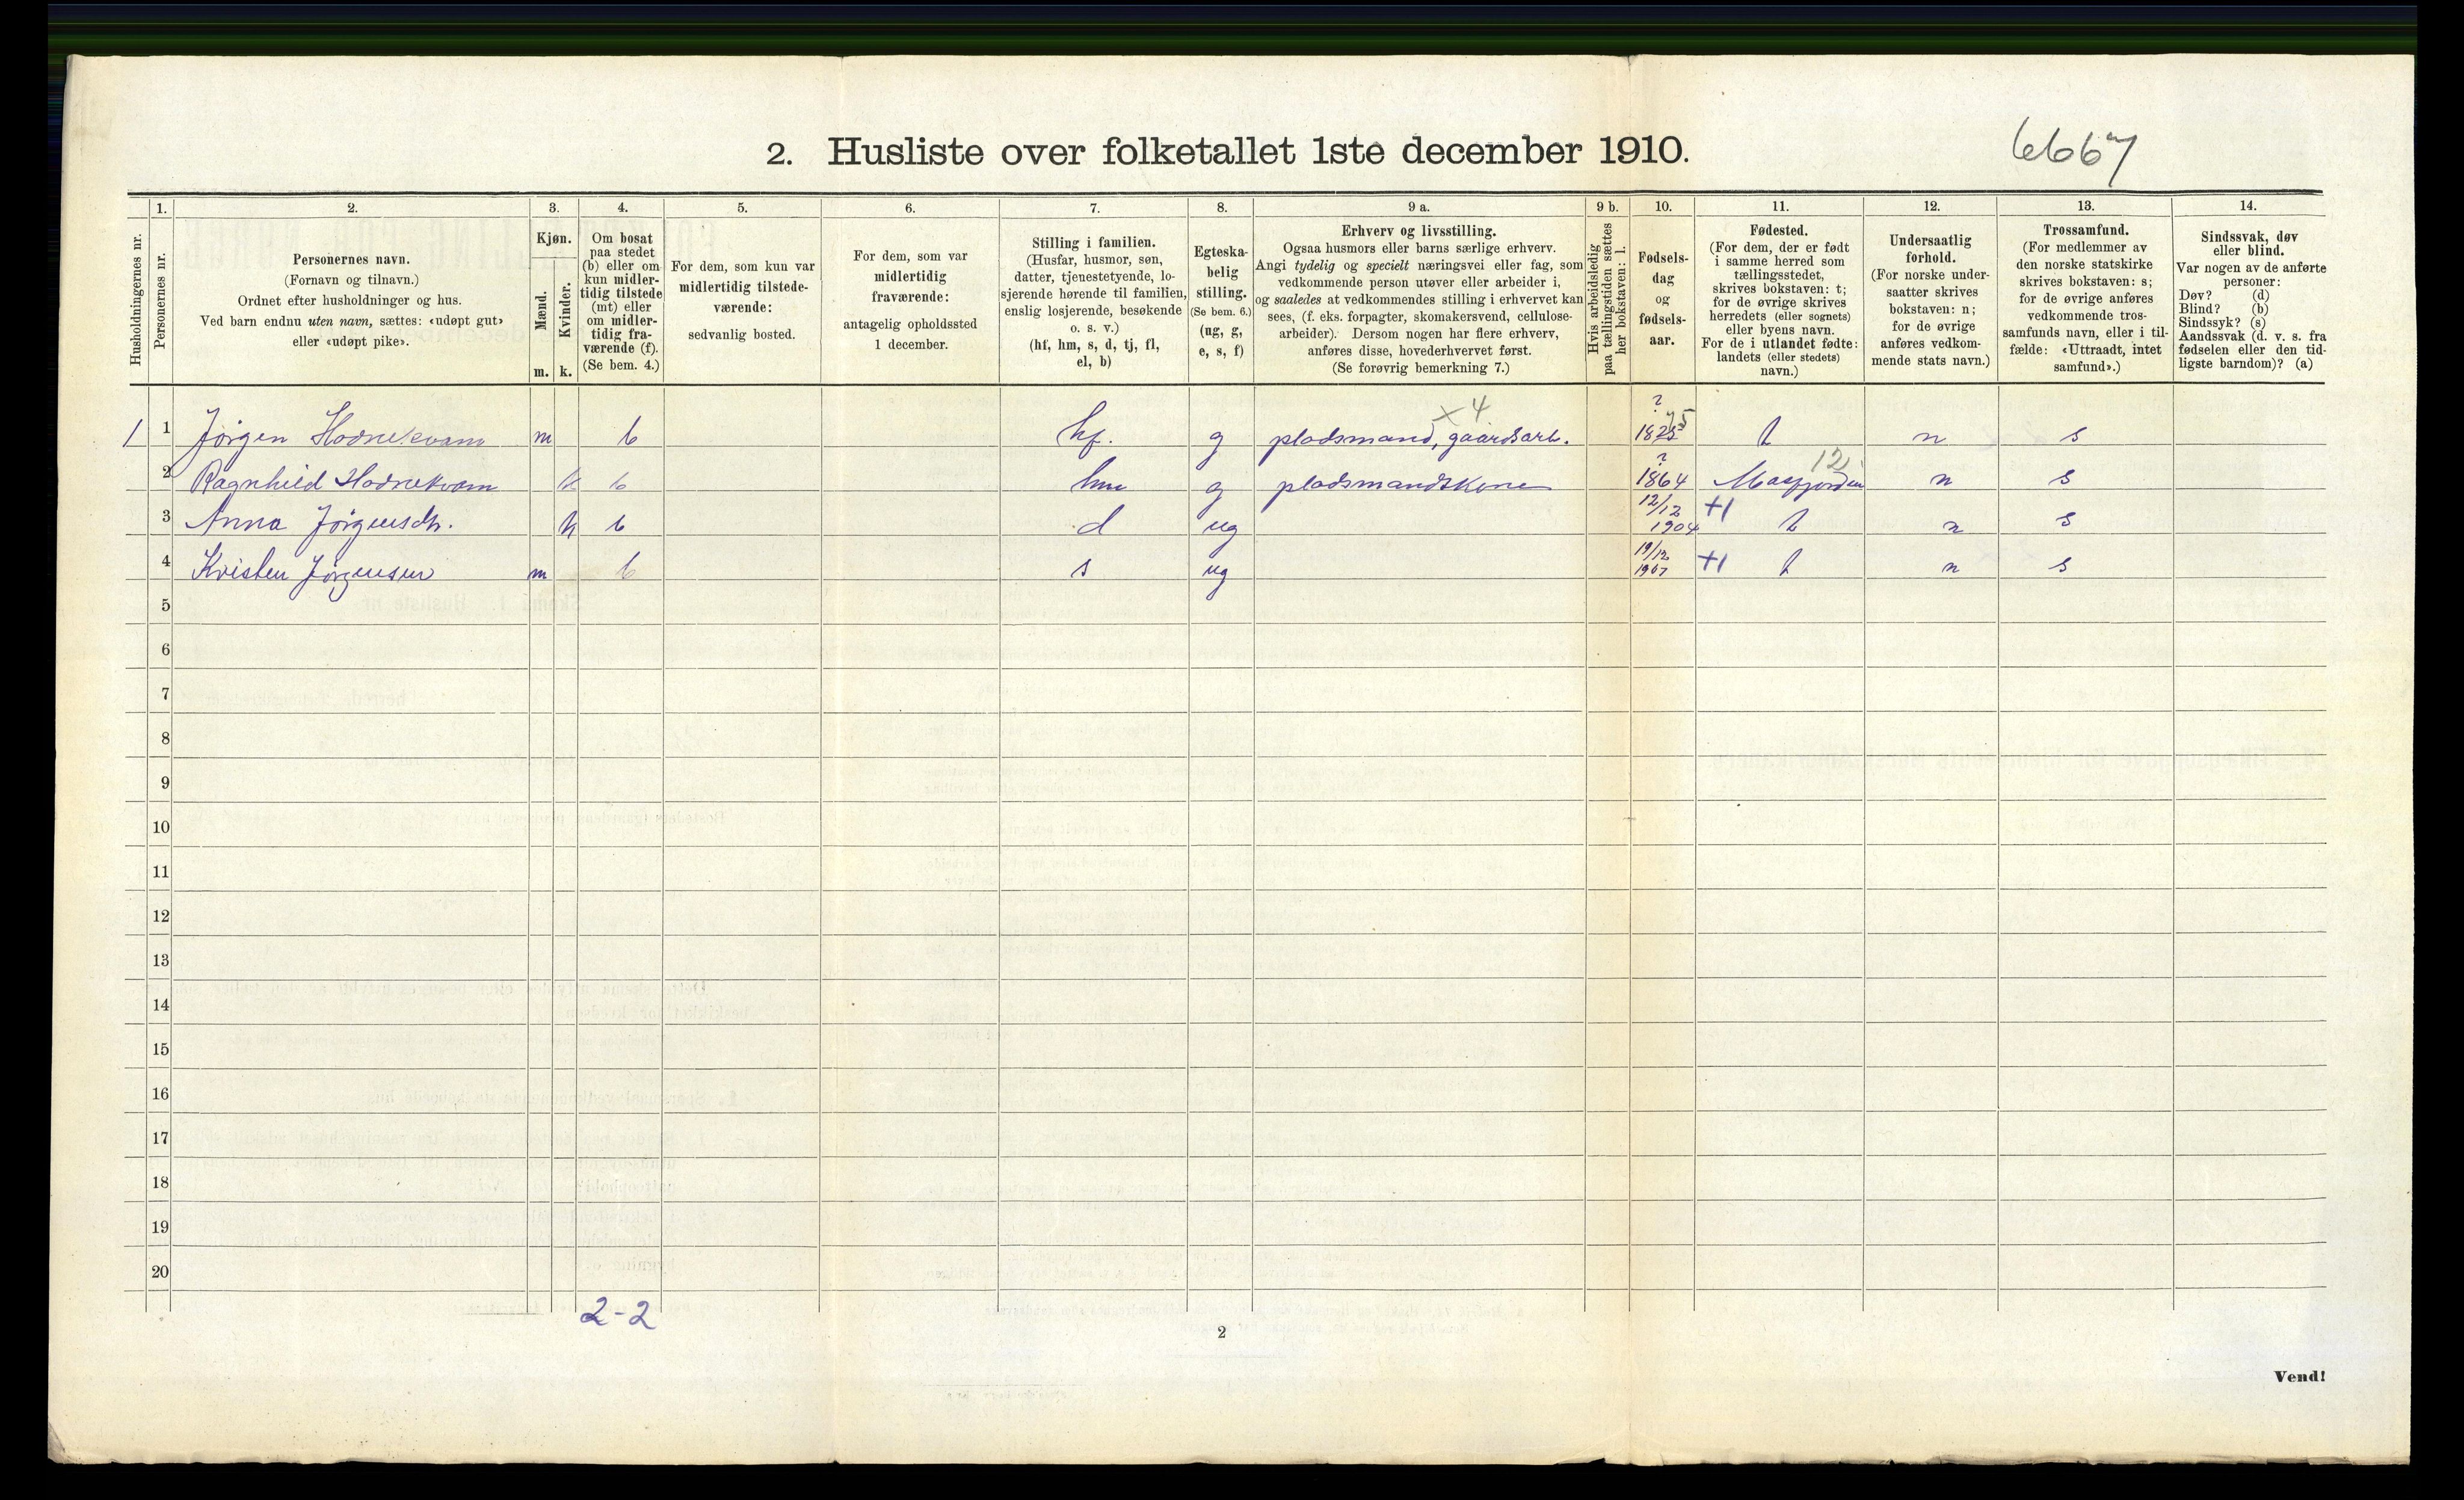 2. Husliste over folketallet 1ste december 1910.
6667
1.
2.
3.
4.
5.
6.
7.
8.
9 a.
9 b.
10.
11.
12.
13.
14.
Husholdningernes nr.
Personernes nr.
Personernes navn.
(Fornavn og tilnavn.)
Ordnet efter husholdninger og hus.
Ved barn endnu uten navn, sættes: «udøpt gut»
eller «udøpt pike».
Kjøn.
Mænd.
Kvinder.
m.
k.
Om bosat
paa stedet
(b) eller om
kun midler-
tidig tilstede
(mt) eller
om midler-
tidig fra-
værende (f).
(Se bem. 4.)
For dem, som kun var
midlertidig tilstede-
værende:
sedvanlig bosted.
For dem, som var
midlertidig
fraværende:
antagelig opholdssted
1 december.
Stilling i familien.
(Husfar, husmor, søn,
datter, tjenestetyende, lo-
sjerende hørende til familien,
enslig losjerende, besøkende
o. s. v.)
(hf, hm, s, d, tj, fl,
el, b)
Egteska-
belig
stilling.
(Se bem. 6.)
(ug, g,
e, s, f)
Erhverv og livsstilling.
Ogsaa husmors eller barns særlige erhverv.
Angi tydelig og specielt næringsvei eller fag, som
vedkommende person utøver eller arbeider i,
og saaledes at vedkommendes stilling i erhvervet kan
sees, (f. eks. forpagter, skomakersvend, cellulose-
arbeider). Dersom nogen har flere erhverv,
anføres disse, hovederhvervet først.
(Se forøvrig bemerkning 7.)
Hvis arbeidsledig
paa tællingstiden sættes
her bokstaven: l.
Fødsels-
dag
og
fødsels-
aar.
Fødested.
(For dem, der er født
i samme herred som
tællingsstedet,
skrives bokstaven: t;
for de øvrige skrives
herredets (eller sognets)
eller byens navn.
For de i utlandet fødte:
landets (eller stedets)
navn.)
Undersaatlig
forhold.
(For norske under-
saatter skrives
bokstaven: n;
for de øvrige
anføres vedkom-
mende stats navn.)
Trossamfund.
(For medlemmer av
den norske statskirke
skrives bokstaven: s;
for de øvrige anføres
vedkommende tros-
samfunds navn, eller i til-
fælde: «Uttraadt, intet
samfund».)
Sindssvak, døv
eller blind.
Var nogen av de anførte
personer:
Døv? (d)
Blind? (b)
Sindssyk? (s)
Aandssvak (d. v. s. fra
fødselen eller den tid-
ligste barndom)? (a)
x 4
1 1 Jørgen Hodnekvam m b hf. g pladsmand, gaardsarb. ? t n s
2 Ragnhild Hodnekvam k b hm g pladsmandskone ? 1864 Masfjorden 12 n s
3 Anna Jørgensdtr. k b d ug 12/12 1904 +1 t n s
4 Kristen Jørgensen m b s ug 19/12 1907 +1 t n s
5
6
7
8
9
10
11
12
13
14
15
16
17
18
19
20
2-2
2
Vend!